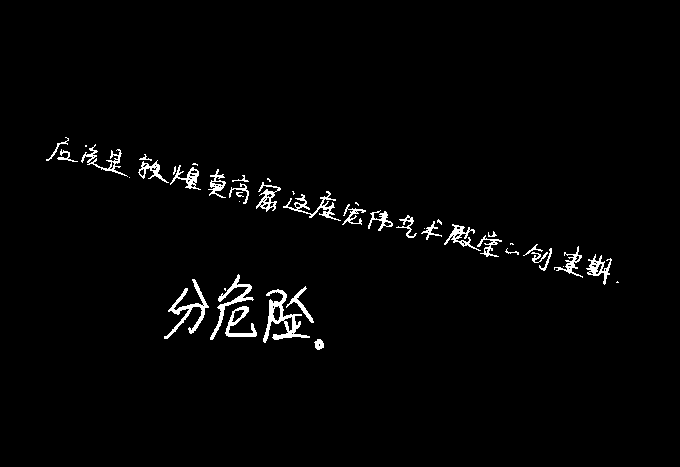 应该是敦煌莫高窟这座宏伟艺术殿堂的创建期.
分危险。